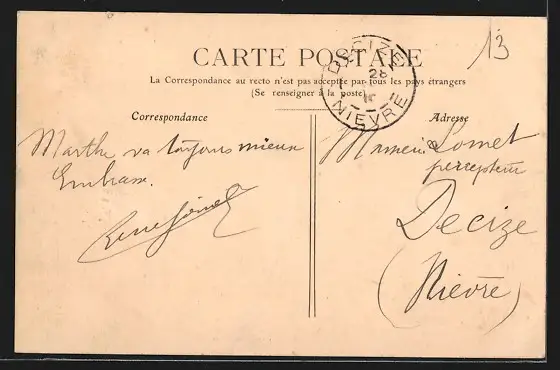 13
CARTE POSTALE
La Correspondance au recto n'est pas acceptée par tous les pays étrangers
(Se renseigner à la poste)
DECIZE
28
NIEVRE
Correspondance
Adresse
Marthe va toujours mieux
Embrasse.
Monsieur Lomet
percepteur
Decize
(Nièvre)